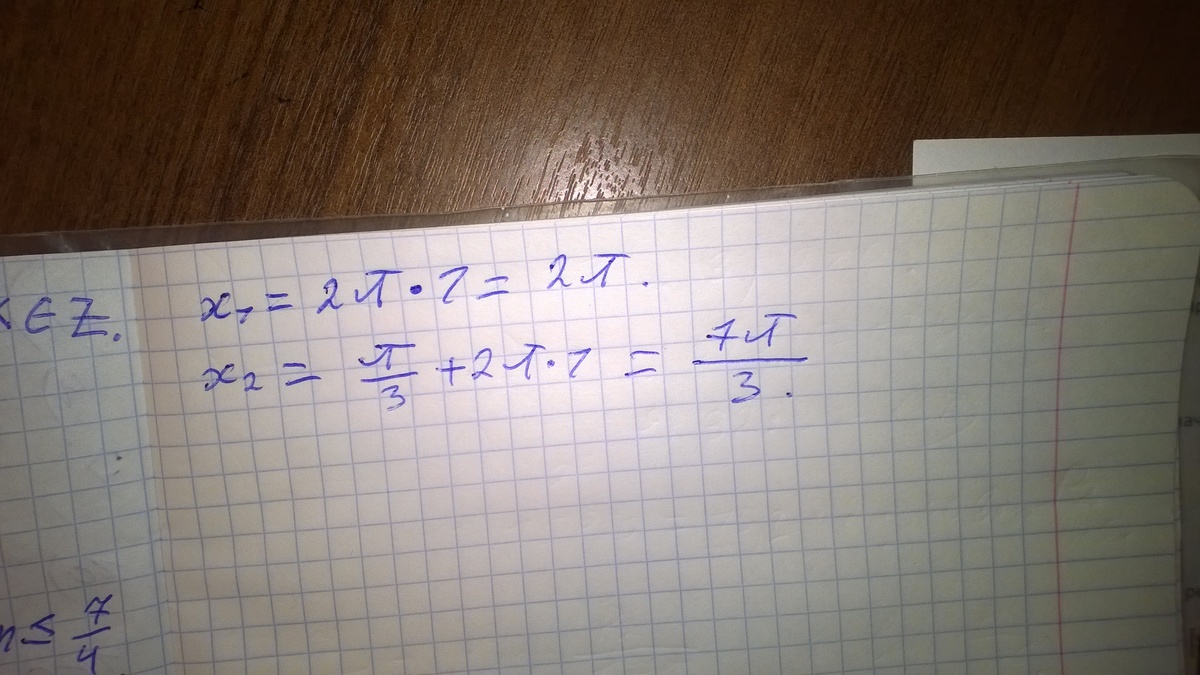 k ∈ Z.
x₁ = 2π · 1 = 2π.
x₂ = π/3 + 2π · 1 = 7π/3.
n ≤ 7/4